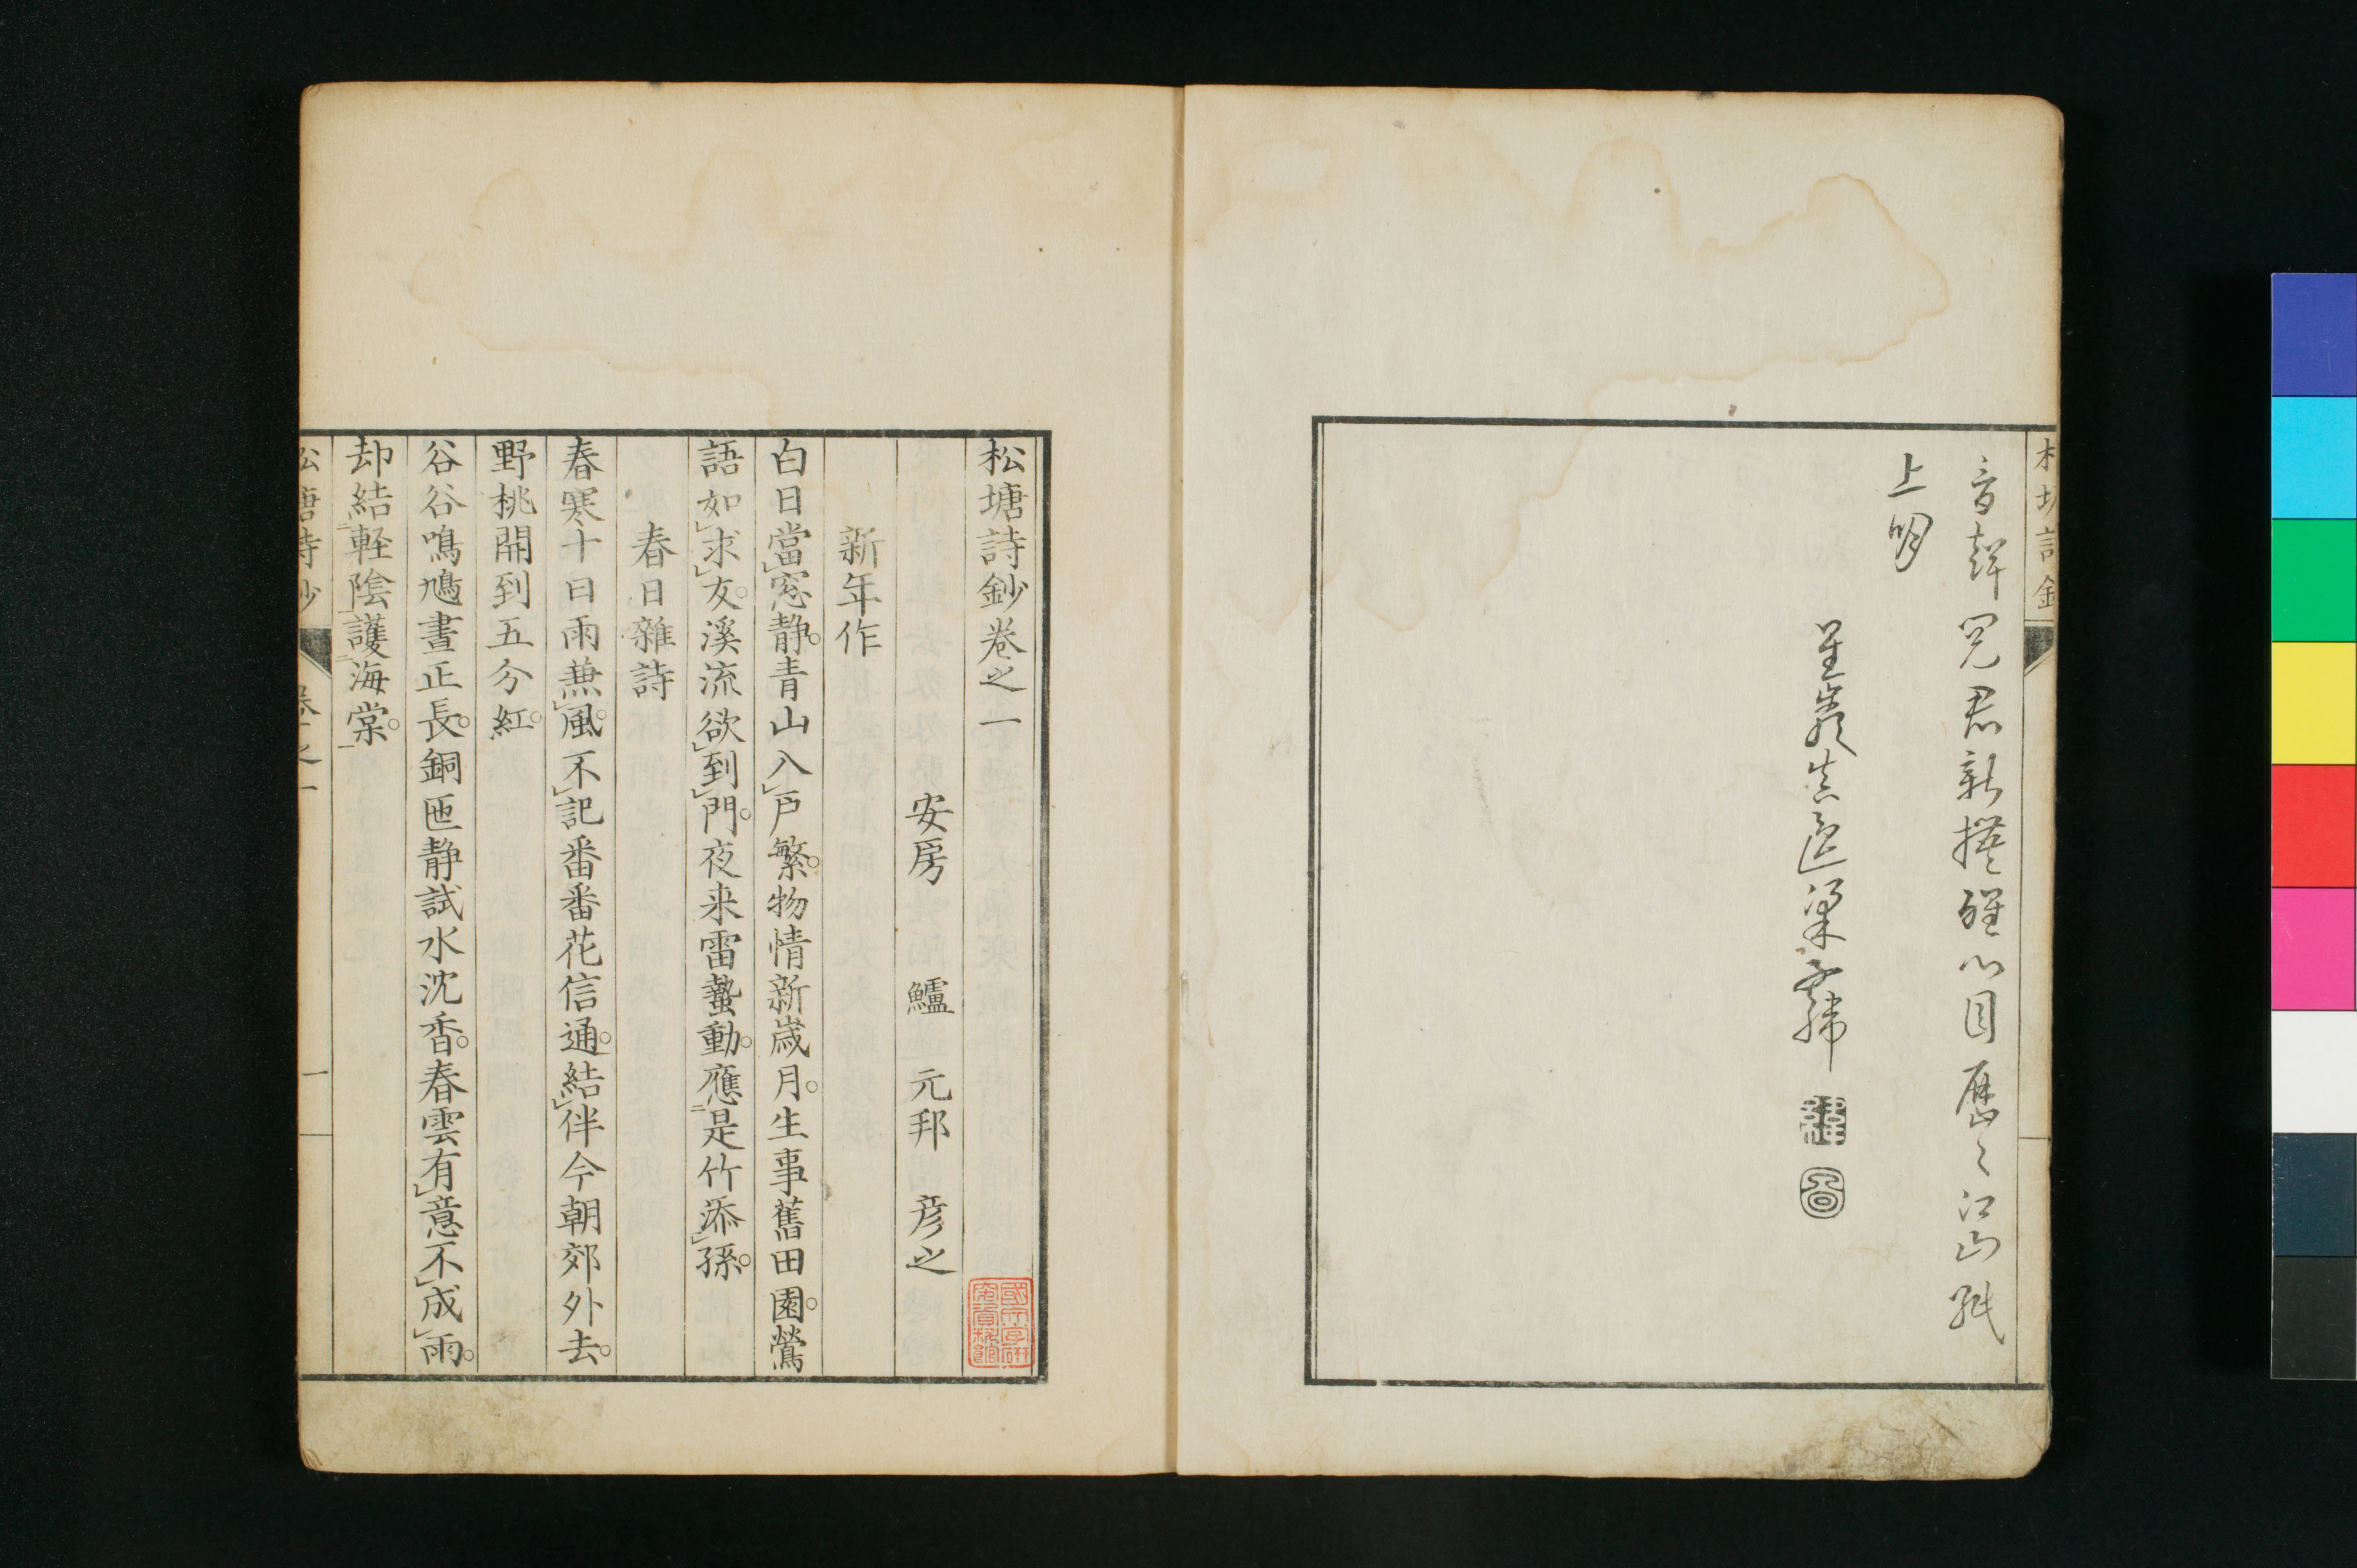 音聲閲君新撰醒心目歴々江山紙
上明
星巖老逸梁孟緯
松塘詩鈔卷之一
安房 鱸 元邦 彦之
新年作
白日當窓静青山入戸繁物情新歳月生事舊田園鶯
語如求友溪流欲到門夜来雷蟄動應是竹添孫
春日雜詩
春寒十日雨兼風不記番番花信通結伴今朝郊外去
野桃開到五分紅
谷谷鳴鳩晝正長銅匜静試水沈香春雲有意不成雨
却結軽陰護海棠
松塘詩鈔 卷之一 一